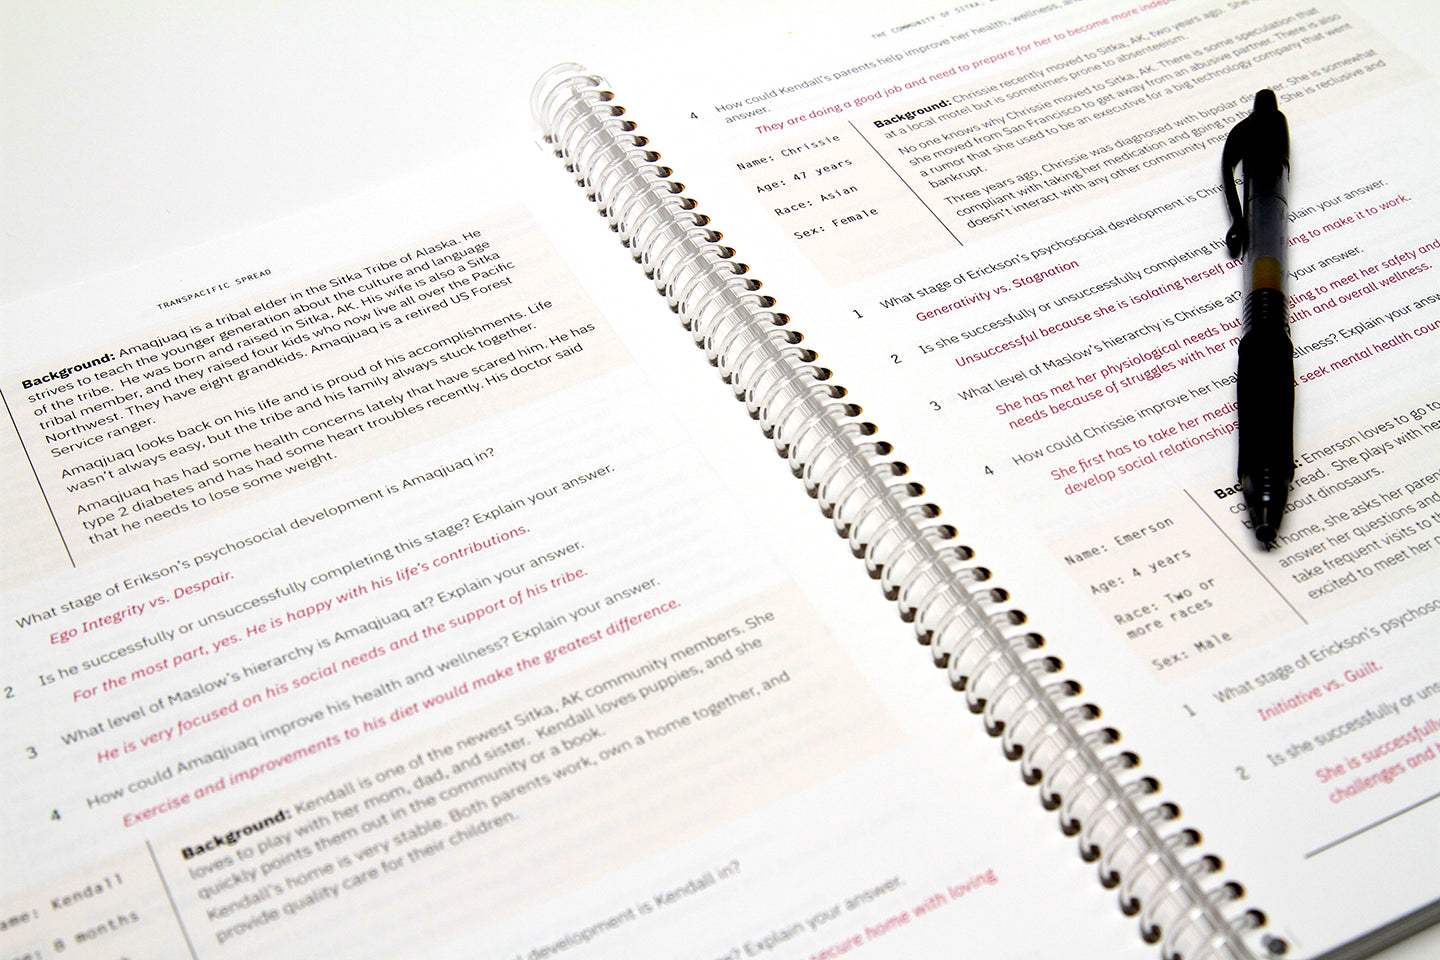 TRANSPACIFIC SPREAD
Background: Amaqjuaq is a tribal elder in the Sitka Tribe of Alaska. He
strives to teach the younger generation about the culture and language
of the tribe. He was born and raised in Sitka, AK. His wife is also a Sitka
tribal member, and they raised four kids who now live all over the Pacific
Northwest. They have eight grandkids. Amaqjuaq is a retired US Forest
Service ranger.
Amaqjuaq looks back on his life and is proud of his accomplishments. Life
wasn't always easy, but the tribe and his family always stuck together.
Amaqjuaq has had some health concerns lately that have scared him. He has
type 2 diabetes and has had some heart troubles recently. His doctor said
that he needs to lose some weight.
What stage of Erikson's psychosocial development is Amaqjuaq in?
Ego Integrity vs. Despair.
2 Is he successfully or unsuccessfully completing this stage? Explain your answer.
For the most part, yes. He is happy with his life's contributions.
3 What level of Maslow's hierarchy is Amaqjuaq at? Explain your answer.
He is very focused on his social needs and the support of his tribe.
4 How could Amaqjuaq improve his health and wellness? Explain your answer.
Exercise and improvements to his diet would make the greatest difference.
ame: Kendall
8 months
Background: Kendall is one of the newest Sitka, AK community members. She
loves to play with her mom, dad, and sister. Kendall loves puppies, and she
quickly points them out in the community or a book.
Kendall's home is very stable. Both parents work, own a home together, and
provide quality care for their children.
development is Kendall in?
? Explain your answer.
secure home with loving
THE COMMUNITY OF SITKA,
4 How could Kendall's parents help improve her health, wellness,
answer.
They are doing a good job and need to prepare for her to become more
Name: Chrissie
Age: 47 years
Race: Asian
Sex: Female
Background: Chrissie recently moved to Sitka, AK, two years ago. She
at a local motel but is sometimes prone to absenteeism.
No one knows why Chrissie moved to Sitka, AK. There is some speculation that
she moved from San Francisco to get away from an abusive partner. There is also
a rumor that she used to be an executive for a big technology company that went
bankrupt.
Three years ago, Chrissie was diagnosed with bipolar She is somewhat
compliant with taking her medication and going to the She is reclusive and
doesn't interact with any other community
1 What stage of Erickson's psychosocial development is
Generativity vs. Stagnation
2 Is she successfully or unsuccessfully completing plain your answer.
Unsuccessful because she is isolating herself to make it to work.
3 What level of Maslow's hierarchy is Chrissie at? your answer.
She has met her physiological needs but to meet her safety and
needs because of struggles with her and overall wellness.
4 How could Chrissie improve her Explain your
She first has to take her seek mental health
develop social relationships
Name: Emerson
Age: 4 years
Race: Two or
more races
Sex: Male
Emerson loves to go to
read. She plays with her
about dinosaurs.
At home, she asks her
answer her questions and
take frequent visits to
excited to meet her
1 What stage of Erickson's
Initiative vs. Guilt.
2 Is she successfully or
She is successfully
challenges and